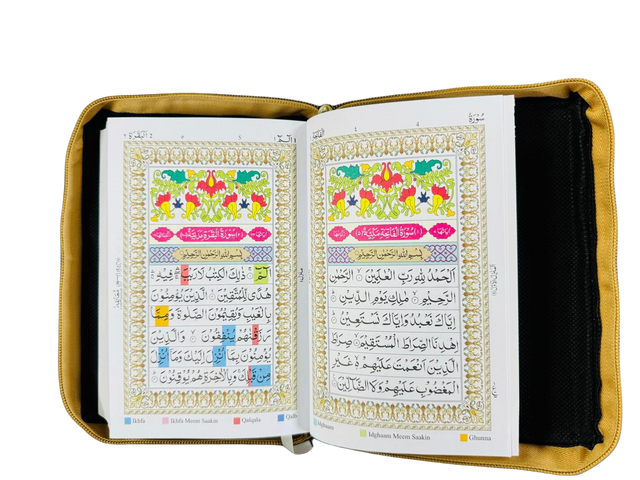 سُوْرَةُ الْفَاتِحَة
سُوْرَةُ الْفَاتِحَةِ مَكِّيَّةٌ
بِسْمِ اللّٰهِ الرَّحْمٰنِ الرَّحِيْمِ
اَلْحَمْدُ لِلّٰهِ رَبِّ الْعٰلَمِيْنَ الرَّحْمٰنِ
الرَّحِيْمِ مٰلِكِ يَوْمِ الدِّيْنِ
اِيَّاكَ نَعْبُدُ وَاِيَّاكَ نَسْتَعِيْنُ
اِهْدِنَا الصِّرَاطَ الْمُسْتَقِيْمَ صِرَاطَ
الَّذِيْنَ اَنْعَمْتَ عَلَيْهِمْ غَيْرِ
الْمَغْضُوْبِ عَلَيْهِمْ وَلَا الضَّآلِّيْنَ
Idghaam Meem Saakin Ghunna
الٓمّٓ ١ 2 اَلْبَقَرَة ٢
سُوْرَةُ الْبَقَرَةِ مَدَنِيَّةٌ
بِسْمِ اللّٰهِ الرَّحْمٰنِ الرَّحِيْمِ
الٓمّٓ ذٰلِكَ الْكِتٰبُ لَا رَيْبَ فِيْهِ
هُدًى لِّلْمُتَّقِيْنَ الَّذِيْنَ يُؤْمِنُوْنَ
بِالْغَيْبِ وَيُقِيْمُوْنَ الصَّلٰوةَ وَمِمَّا
رَزَقْنٰهُمْ يُنْفِقُوْنَ وَالَّذِيْنَ
يُؤْمِنُوْنَ بِمَآ اُنْزِلَ اِلَيْكَ وَمَآ اُنْزِلَ
مِنْ قَبْلِكَ وَبِالْاٰخِرَةِ هُمْ يُوْقِنُوْنَ
Ikhfa Ikhfa Meem Saakin Qalqala Qalb